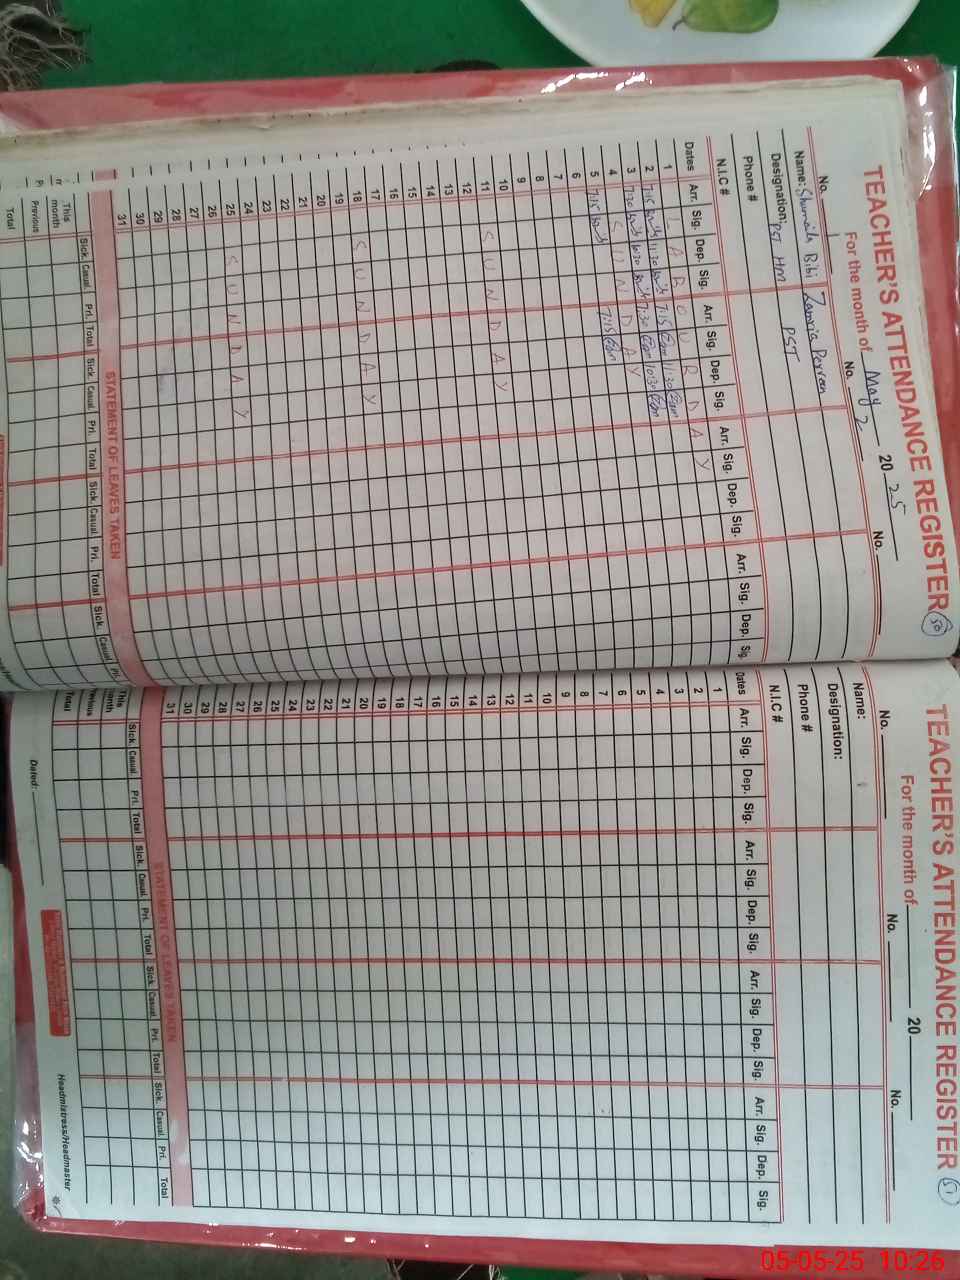 TEACHER'S ATTENDANCE REGISTER 50
For the month of May 2025
No. No. 2 No.
Name: Shumaila Bibi Zamria Perveen
Designation: PST HM PST
Phone #
N.I.C #
Dates Arr. Sig. Dep. Sig. Arr. Sig. Dep. Sig. Arr. Sig. Dep. Sig. Arr. Sig. Dep. Sig.
1 L A B O U R D A Y
2 7:15 11:30 7:15 11:30
3 7:30 10:30 7:30 10:30
4 S U N D A Y
5 7:15 7:15
6
7
8
9
10
11 S U N D A Y
12
13
14
15
16
17
18 S U N D A Y
19
20
21
22
23
24
25 S U N D A Y
26
27
28
29
30
31
STATEMENT OF LEAVES TAKEN
Sick. Casual Pri. Total Sick. Casual Pri. Total Sick. Casual Pri. Total Sick. Casual Pri.
This month
Previous
Total
TEACHER'S ATTENDANCE REGISTER 51
For the month of 20
No. No. No.
Name:
Designation:
Phone #
N.I.C #
Dates Arr. Sig. Dep. Sig. Arr. Sig. Dep. Sig. Arr. Sig. Dep. Sig. Arr. Sig. Dep. Sig.
1
2
3
4
5
6
7
8
9
10
11
12
13
14
15
16
17
18
19
20
21
22
23
24
25
26
27
28
29
30
31
STATEMENT OF LEAVES TAKEN
Sick. Casual Pri. Total Sick. Casual Pri. Total Sick. Casual Pri. Total Sick. Casual Pri. Total
This month
Previous
Total
Dated:
Headmistress/Headmaster
05-05-25 10:26